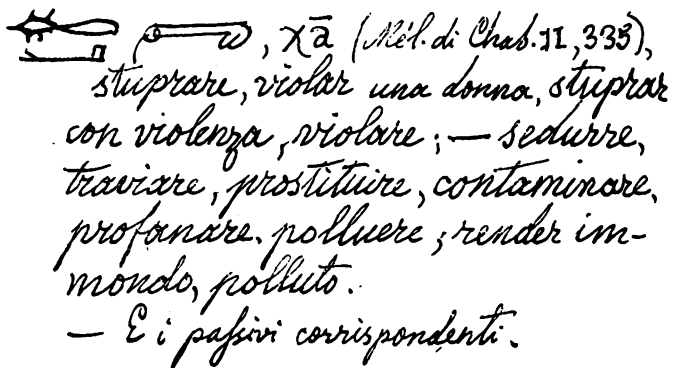 , χā (Mél. di Chab. II, 333),
stuprare, violar una donna, stuprar
con violenza, violare; — sedurre,
traviare, prostituire, contaminare,
profanare. polluere; render im-
mondo, polluto.
— E i passivi corrispondenti.